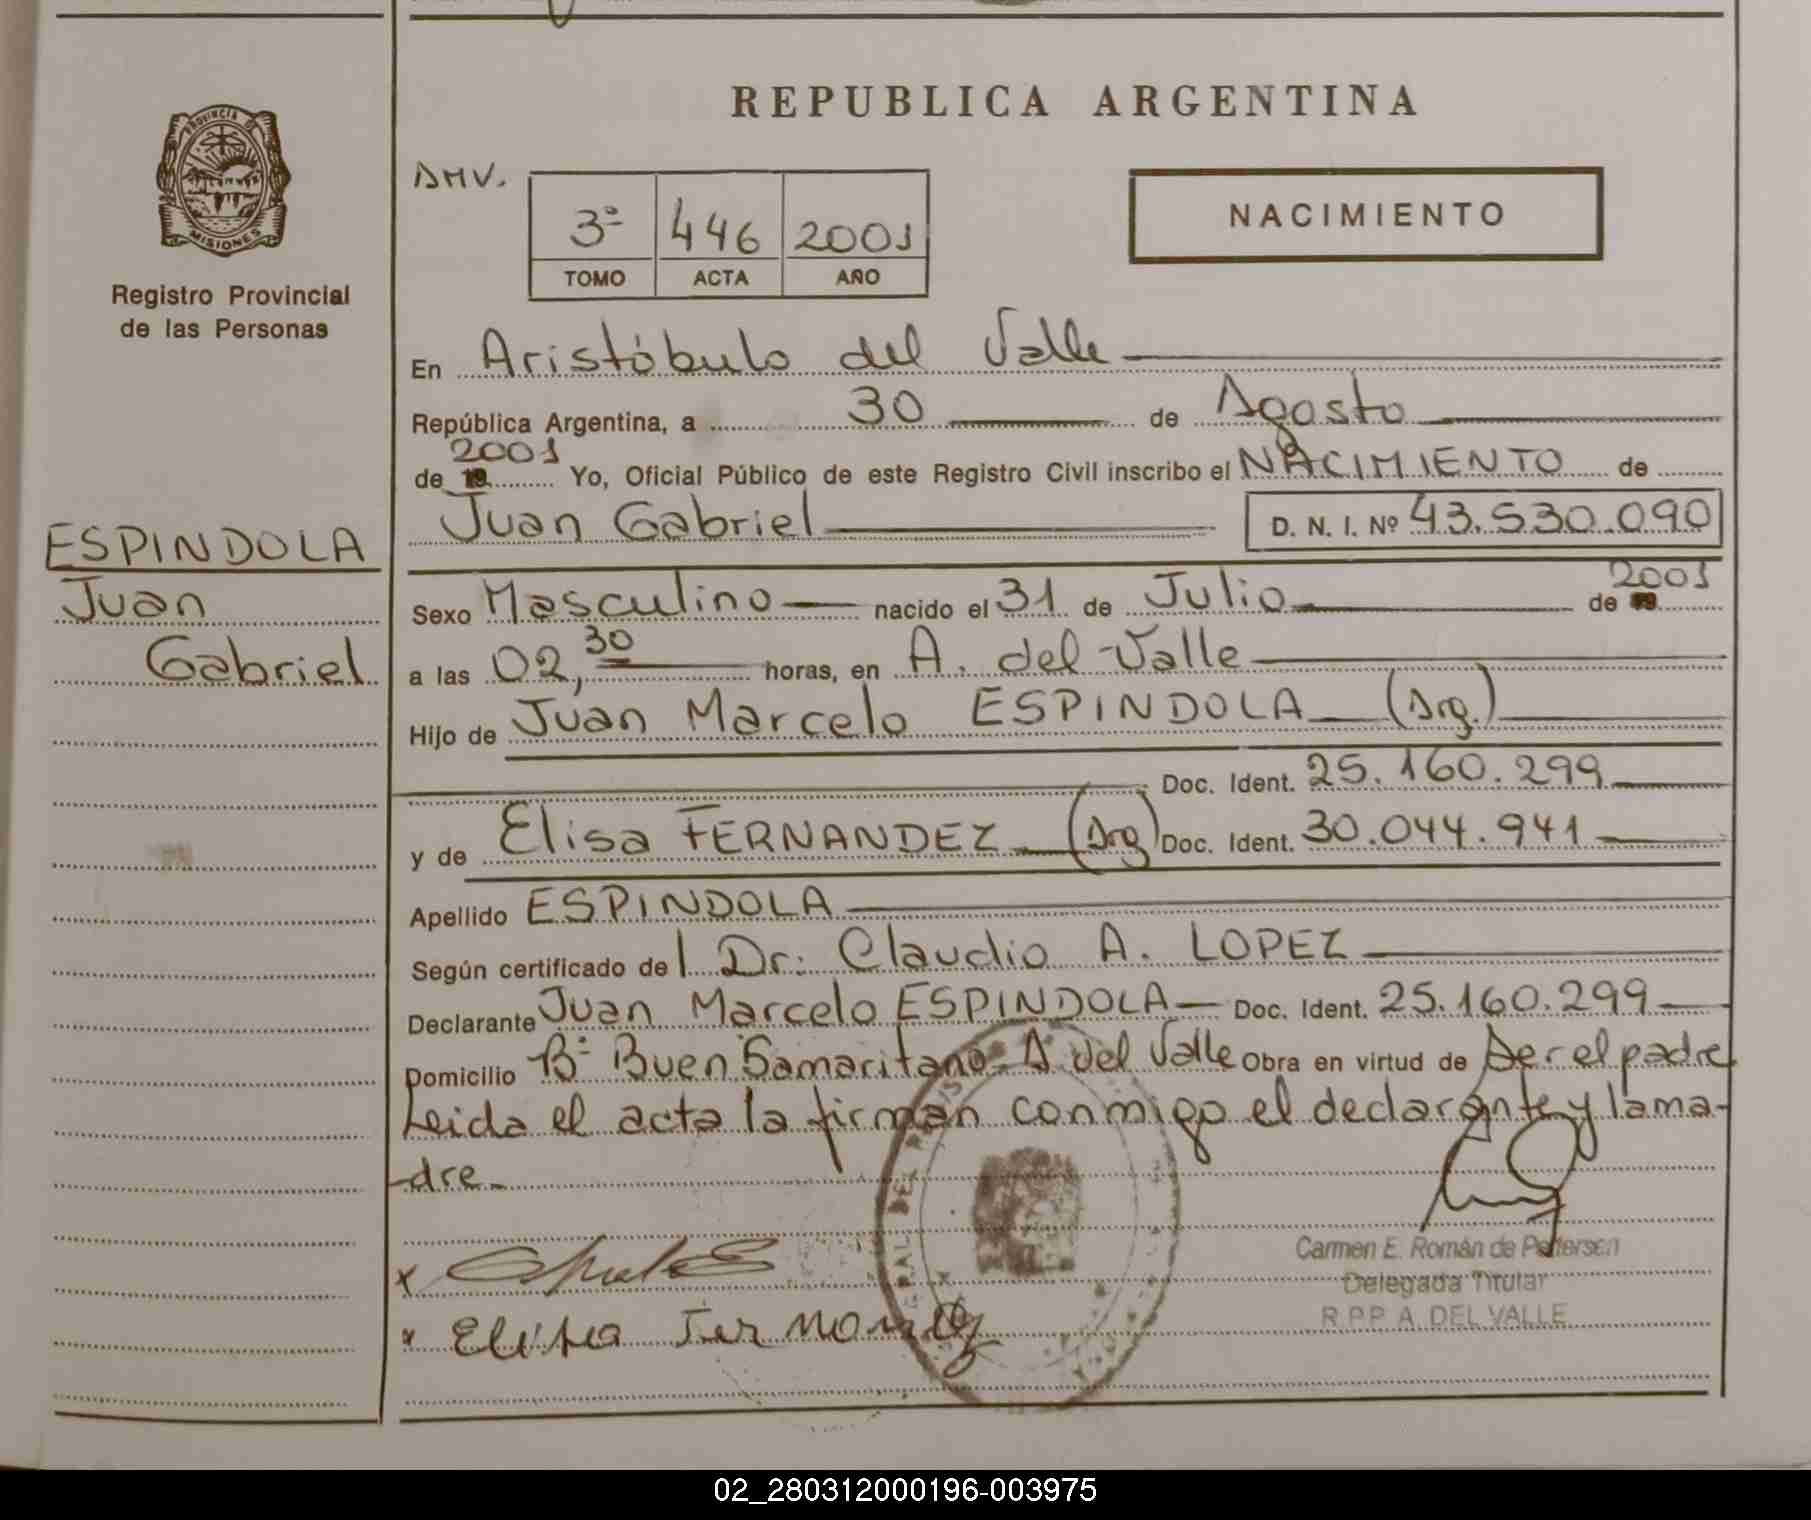 REPUBLICA ARGENTINA
PROVINCIA DE
MISIONES
Registro Provincial
de las Personas
AMV.
3º 446 2001
TOMO ACTA AÑO
NACIMIENTO
En Aristóbulo del Valle
República Argentina, a 30 de Agosto
2001
de 19 Yo, Oficial Público de este Registro Civil inscribo el NACIMIENTO de
Juan Gabriel D. N. I. Nº 43.530.090
ESPINDOLA
Juan
Gabriel
Sexo Masculino nacido el 31 de Julio de 19 2001
a las 02,30 horas, en A. del Valle
Hijo de Juan Marcelo ESPINDOLA (Arg.)
Doc. Ident. 25.160.299
y de Elisa FERNANDEZ (Arg) Doc. Ident. 30.044.941
Apellido ESPINDOLA
Según certificado del Dr. Claudio A. LOPEZ
Declarante Juan Marcelo ESPINDOLA Doc. Ident. 25.160.299
Domicilio Bº Buen Samaritano - A del Valle Obra en virtud de Ser el padre
Leida el acta la firman conmigo el declarante y la ma-
-dre.
Carmen E. Román de Petersen
Delegada Titular
R.P.P. A. DEL VALLE
x
x Elisa Fernandez
02_280312000196-003975